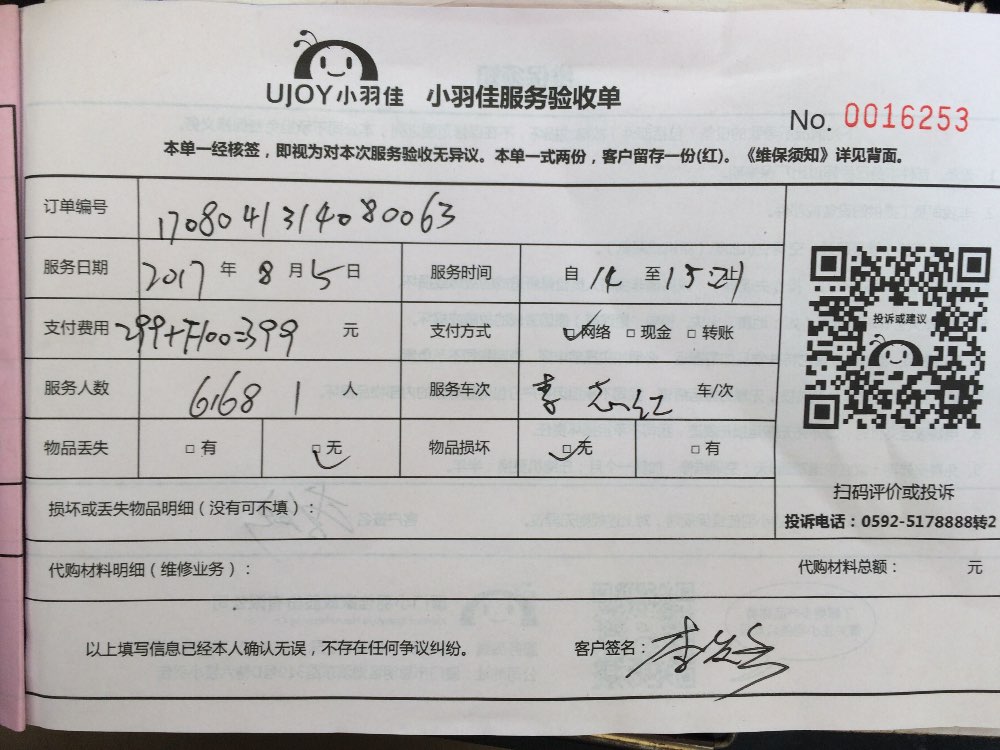 UJOY小羽佳 小羽佳服务验收单
No. 0016253
本单一经核签，即视为对本次服务验收无异议。本单一式两份，客户留存一份(红)。《维保须知》详见背面。
订单编号 170804131408 0063
服务日期 2017 年 8 月 5 日 服务时间 自 14 至 15:21 止
支付费用 299+开100=399 元 支付方式 □网络 □现金 □转账
投诉或建议
服务人数 6168 1 人 服务车次 车/次
物品丢失 □有 □无 物品损坏 □无 □有
扫码评价或投诉
损坏或丢失物品明细（没有可不填）：
投诉电话：0592-5178888转2
代购材料明细（维修业务）： 代购材料总额： 元
以上填写信息已经本人确认无误，不存在任何争议纠纷。 客户签名：